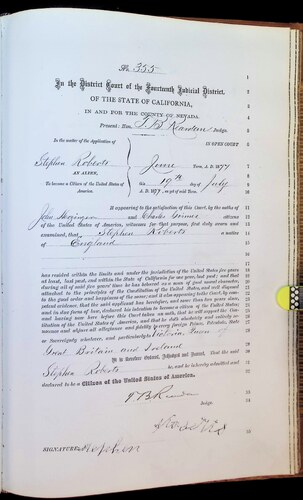 No. 355
In the District Court of the Fourteenth Judicial District,
OF THE STATE OF CALIFORNIA,
IN AND FOR THE COUNTY OF NEVADA.
Present: Hon. T B Reardan Judge.
In the matter of the Application of
IN OPEN COURT
Stephen Roberts June Term, A. D. 1877
AN ALIEN, this 19th day of July
To become a Citizen of the United States of America. A. D. 1877, as yet of said Term.
It appearing to the satisfaction of this Court, by the oaths of
John and Charles Grimes citizens
of the United States of America, witnesses for that purpose, first duly sworn and
examined, that Stephen Roberts a native
of England
has resided within the limits and under the jurisdiction of the United States five years
at least, last past, and within the State of California for one year, last past; and that
during all of said five years' time he has behaved as a man of good moral character,
attached to the principles of the Constitution of the United States, and well disposed
to the good order and happiness of the same; and it also appearing to the Court, by com-
petent evidence, that the said applicant has heretofore, and more than two years since,
and in due form of law, declared his intention to become a citizen of the United States;
and having now here before this Court taken an oath, that he will support the Con-
stitution of the United States of America, and that he doth absolutely and entirely re-
nounce and abjure all allegiance and fidelity to every foreign Prince, Potentate, State
or Sovereignty whatever, and particularly to Victoria, Queen of
Great Britain and Ireland
It is therefore Ordered, Adjudged and Decreed, That the said
Stephen Roberts be, and he is hereby admitted and
declared to be a Citizen of the United States of America.
T B Reardan
Judge.
SIGNATURE: Stephen Roberts
1
2
3
4
5
6
7
8
9
10
11
12
13
14
15
16
17
18
19
20
21
22
23
24
25
26
27
28
29
30
31
32
33
34
35